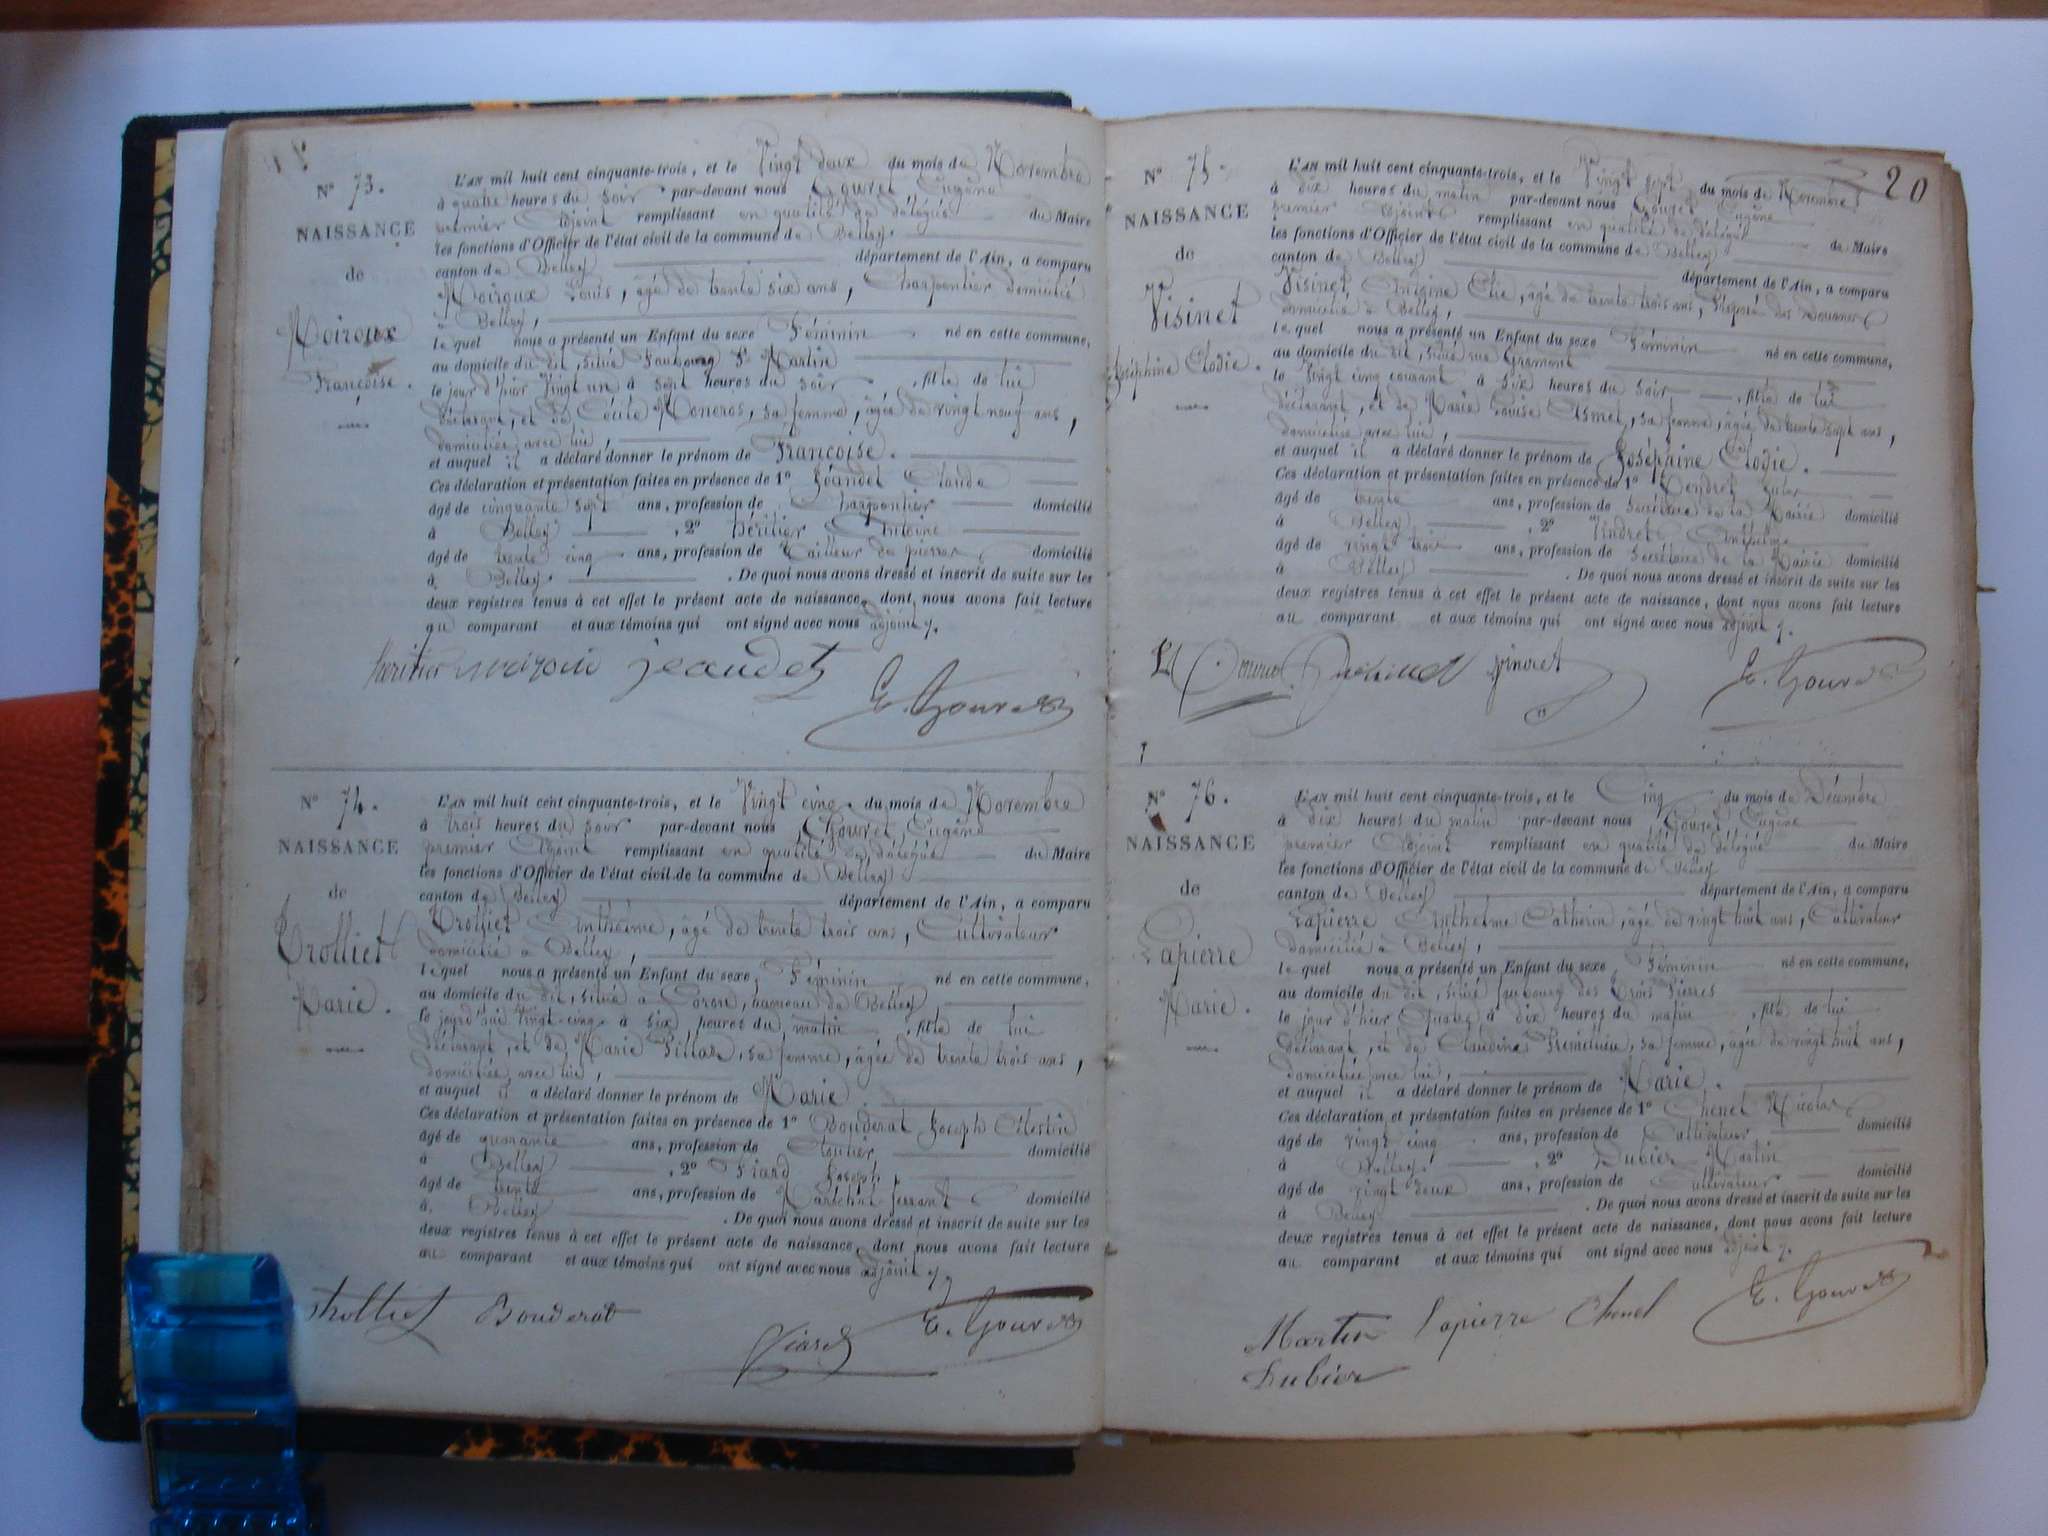 N° 73.
NAISSANCE
de
Moiroux
Françoise.
L'AN mil huit cent cinquante-trois, et le Vingt deux du mois de Novembre
à quatre heures du soir par-devant nous Gouvret Eugène
premier adjoint remplissant en qualité de délégué du Maire
les fonctions d'Officier de l'état civil de la commune de Belley.
canton de Belley département de l'Ain, a comparu
Moiroux Louis, âgé de trente six ans, Charpentier domicilié
à Belley,
lequel nous a présenté un Enfant du sexe Féminin né en cette commune,
au domicile du dit, situé Faubourg St Martin
le jour d'hier Vingt un à sept heures du soir, fille de lui
déclarant, et de Cécile, sa femme, âgée de vingt neuf ans,
domiciliée avec lui,
et auquel il a déclaré donner le prénom de Françoise.
Ces déclaration et présentation faites en présence de 1° Jeandet Claude
âgé de cinquante sept ans, profession de Charpentier domicilié
à Belley, 2° Héritier Antoine
âgé de trente cinq ans, profession de Tailleur de pierres domicilié
à Belley. De quoi nous avons dressé et inscrit de suite sur les
deux registres tenus à cet effet le présent acte de naissance, dont nous avons fait lecture
au comparant et aux témoins qui ont signé avec nous adjoint
jeandet
E. Gouvret
N° 74.
NAISSANCE
de
Trolliet
Marie.
L'AN mil huit cent cinquante-trois, et le Vingt cinq du mois de Novembre
à trois heures du soir par-devant nous Gouvret Eugène
premier adjoint remplissant en qualité de délégué du Maire
les fonctions d'Officier de l'état civil de la commune de Belley
canton de Belley département de l'Ain, a comparu
Trolliet Anthelme, âgé de trente trois ans, Cultivateur
domicilié à Belley,
lequel nous a présenté un Enfant du sexe Féminin né en cette commune,
au domicile du dit, situé à Coron, hameau de Belley
le jourd'hui vingt-cinq à six heures du matin, fille de lui
déclarant, et de Marie, sa femme, âgée de trente trois ans,
domiciliée avec lui,
et auquel il a déclaré donner le prénom de Marie
Ces déclaration et présentation faites en présence de 1° Bouderat Joseph Célestin
âgé de quarante ans, profession de Cloutier domicilié
à Belley, 2° Fiard Joseph
âgé de trente ans, profession de Maréchal ferrant domicilié
à Belley. De quoi nous avons dressé et inscrit de suite sur les
deux registres tenus à cet effet le présent acte de naissance, dont nous avons fait lecture
au comparant et aux témoins qui ont signé avec nous adjoint
Bouderat
Fiard
E. Gouvret
20
N° 75.
NAISSANCE
de
Visinet
Joséphine Elodie.
L'AN mil huit cent cinquante-trois, et le Vingt sept du mois de Novembre
à dix heures du matin par-devant nous Gouvret Eugène
premier adjoint remplissant en qualité de délégué du Maire
les fonctions d'Officier de l'état civil de la commune de Belley
canton de Belley département de l'Ain, a comparu
Visinet Elie, âgé de trente trois ans, Préposé des Douanes
domicilié à Belley,
lequel nous a présenté un Enfant du sexe Féminin né en cette commune,
au domicile du dit, situé rue Gramont
le vingt cinq courant à six heures du soir, fille de lui
déclarant, et de Marie Louise, sa femme, âgée de trente sept ans,
domiciliée avec lui,
et auquel il a déclaré donner le prénom de Joséphine Elodie.
Ces déclaration et présentation faites en présence de 1°
âgé de trente ans, profession de Secrétaire de la Mairie domicilié
à Belley, 2° Vindret Anthelme
âgé de vingt trois ans, profession de Secrétaire de la Mairie domicilié
à Belley. De quoi nous avons dressé et inscrit de suite sur les
deux registres tenus à cet effet le présent acte de naissance, dont nous avons fait lecture
au comparant et aux témoins qui ont signé avec nous adjoint
E. Gouvret
N° 76.
NAISSANCE
de
Lapierre
Marie.
L'AN mil huit cent cinquante-trois, et le Cinq du mois de Décembre
à dix heures du matin par-devant nous Gouvret Eugène
premier adjoint remplissant en qualité de délégué du Maire
les fonctions d'Officier de l'état civil de la commune de Belley
canton de Belley département de l'Ain, a comparu
Lapierre Anthelme Catherin, âgé de vingt huit ans, Cultivateur
domicilié à Belley,
lequel nous a présenté un Enfant du sexe Féminin né en cette commune,
au domicile du dit, situé faubourg des Trois Pierres
le jour d'hier Quatre à dix heures du matin, fille de lui
déclarant, et de Claudine, sa femme, âgée de vingt huit ans,
domiciliée avec lui,
et auquel il a déclaré donner le prénom de Marie.
Ces déclaration et présentation faites en présence de 1° Chenel Nicolas
âgé de vingt cinq ans, profession de Cultivateur domicilié
à Belley. 2° Dubier Martin
âgé de vingt deux ans, profession de Cultivateur domicilié
à Belley. De quoi nous avons dressé et inscrit de suite sur les
deux registres tenus à cet effet le présent acte de naissance, dont nous avons fait lecture
au comparant et aux témoins qui ont signé avec nous adjoint
Martin Lapierre Chenel E. Gouvret
Dubier